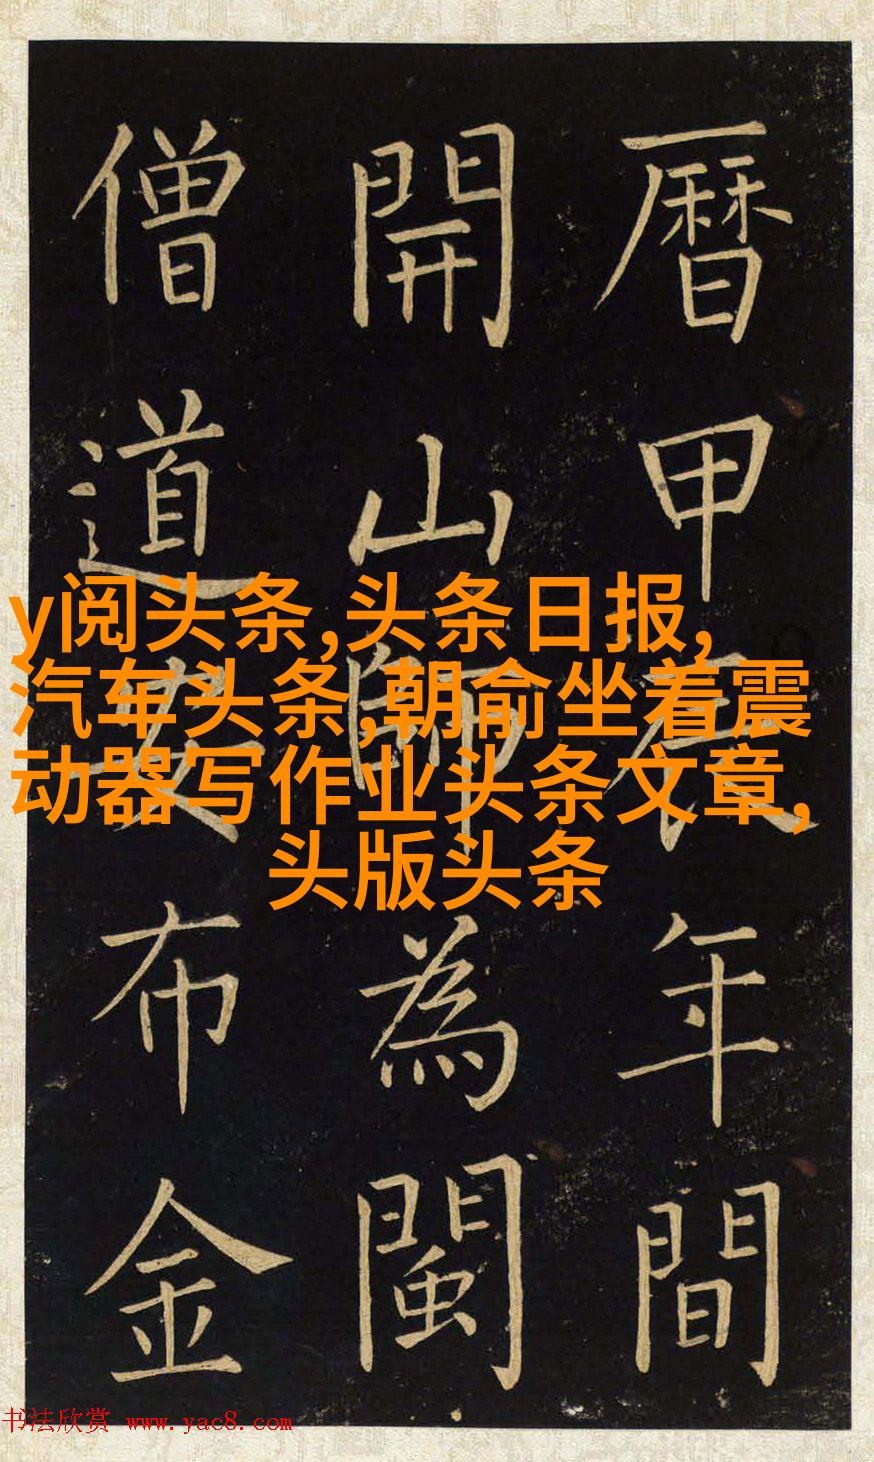 曆甲辰年間
開山師為閩
僧道安布金
y阅头条,头条日报,
汽车头条,朝俞坐着震
动器写作业头条文章,
头版头条
书法欣赏 www.yac8.com